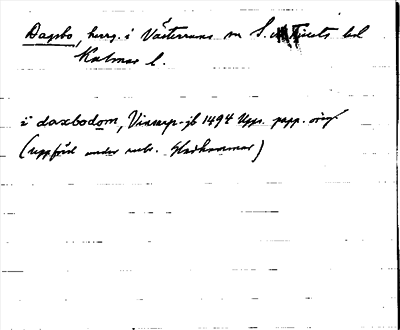 Dagsbo, herrg. i Västerrums sn S. Tjusts hd
Kalmar l.
i daxbodom, Vinarp-jb 1494 Upps. papp. orig
(uppförd under rubr. Gladhammar)